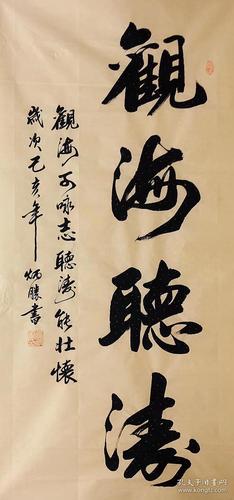 觀海聽濤
觀海可咏志聽濤能壯懷
歲次己亥年
炳勝書
孔夫子旧书网
www.kongfz.com